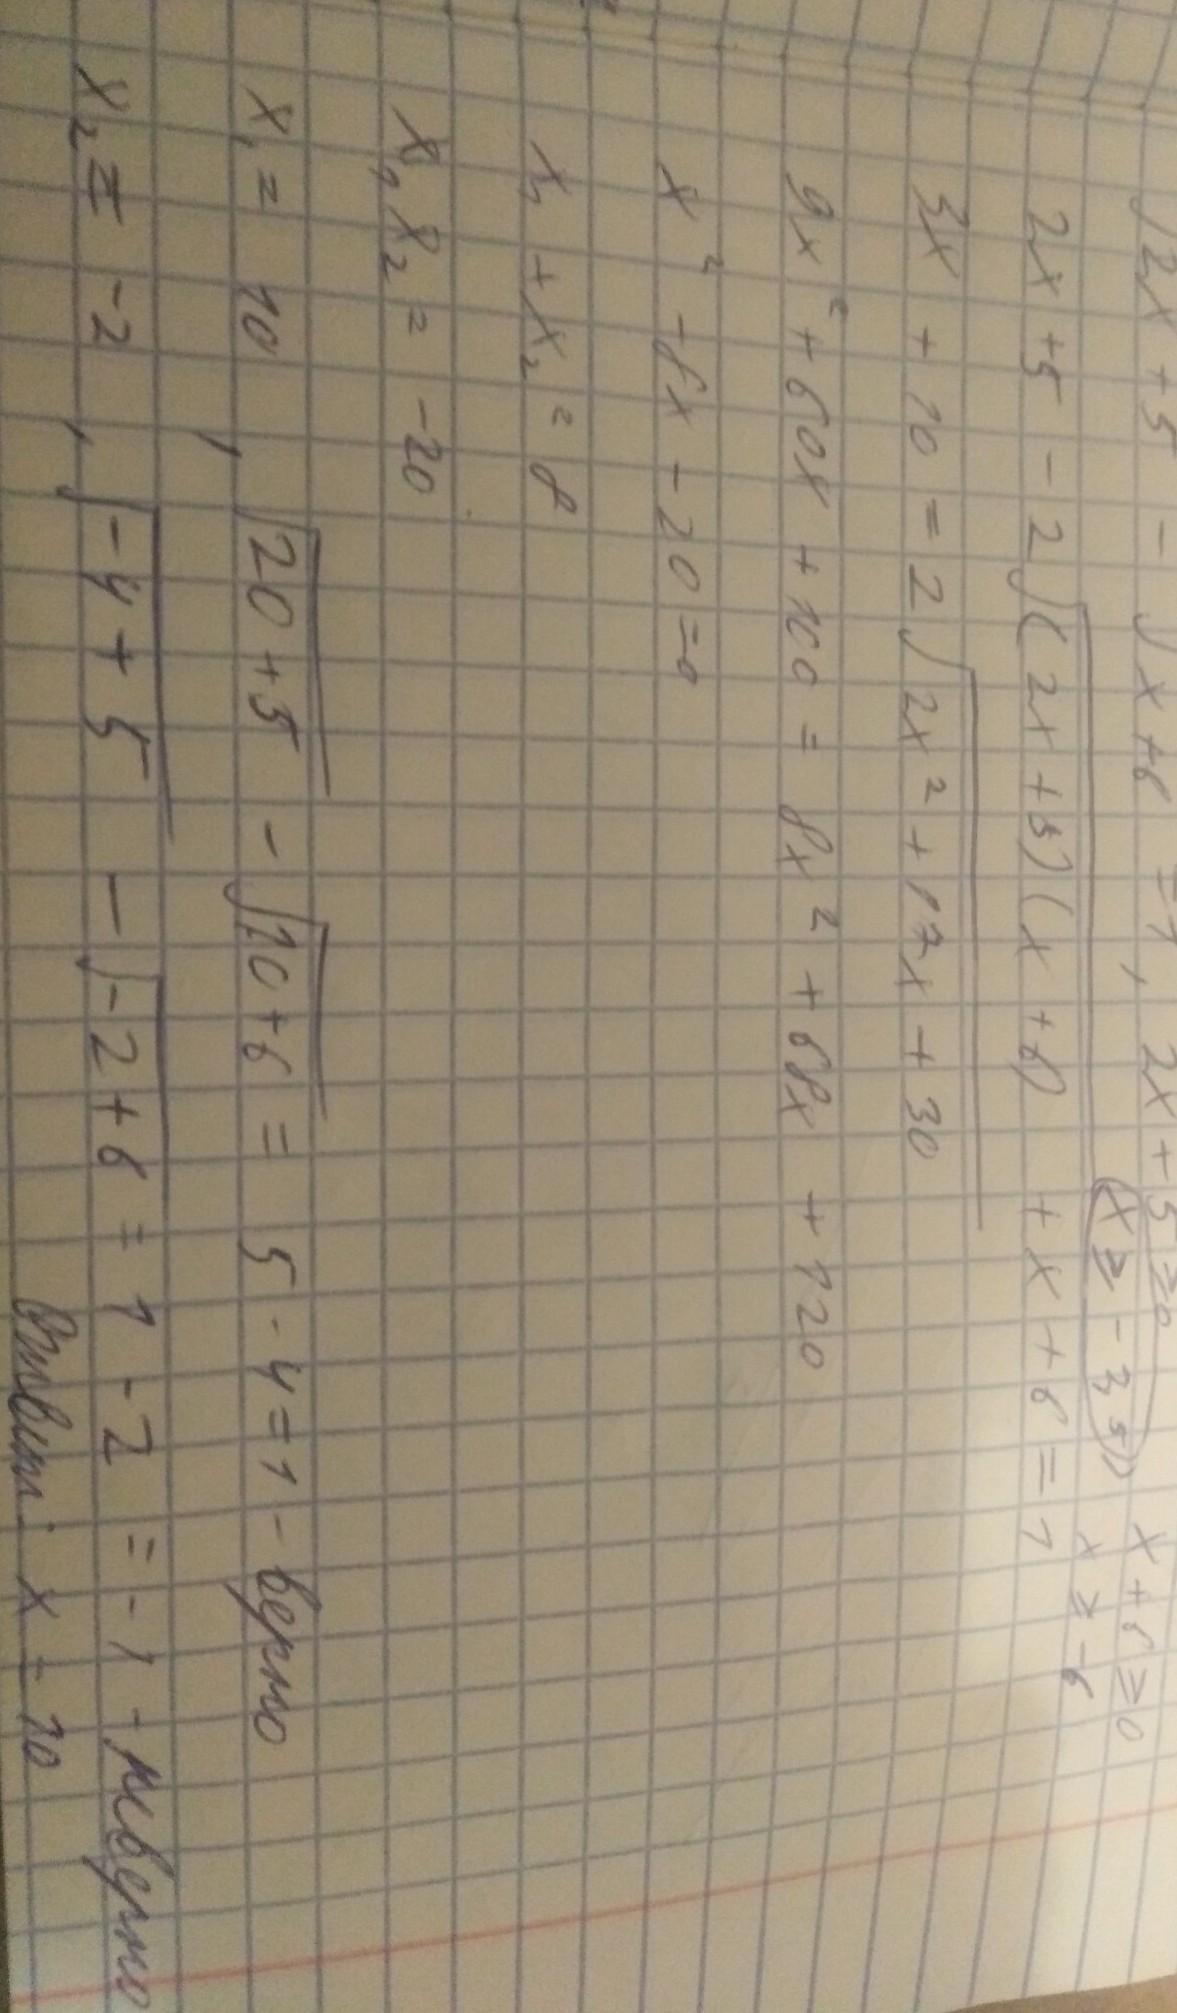 √2x + 5 - √x+6 = 1, 2x + 5 ≥ 0 x + 6 ≥ 0
x ≥ -3 5) x ≥ -6
2x + 5 - 2√(2x + 5)(x + 6) + x + 6 = 1
3x + 10 = 2√2x² + 17x + 30
9x² + 60x + 100 = 8x² + 68x + 120
x² - 8x - 20 = 0
x₁ + x₂ = 8
x₁ x₂ = -20
x₁ = 10, √20 + 5 - √10 + 6 = 5 - 4 = 1 - верно
x₂ = -2, √-4 + 5 - √-2 + 6 = 1 - 2 = -1 - неверно
Ответ: x = 10